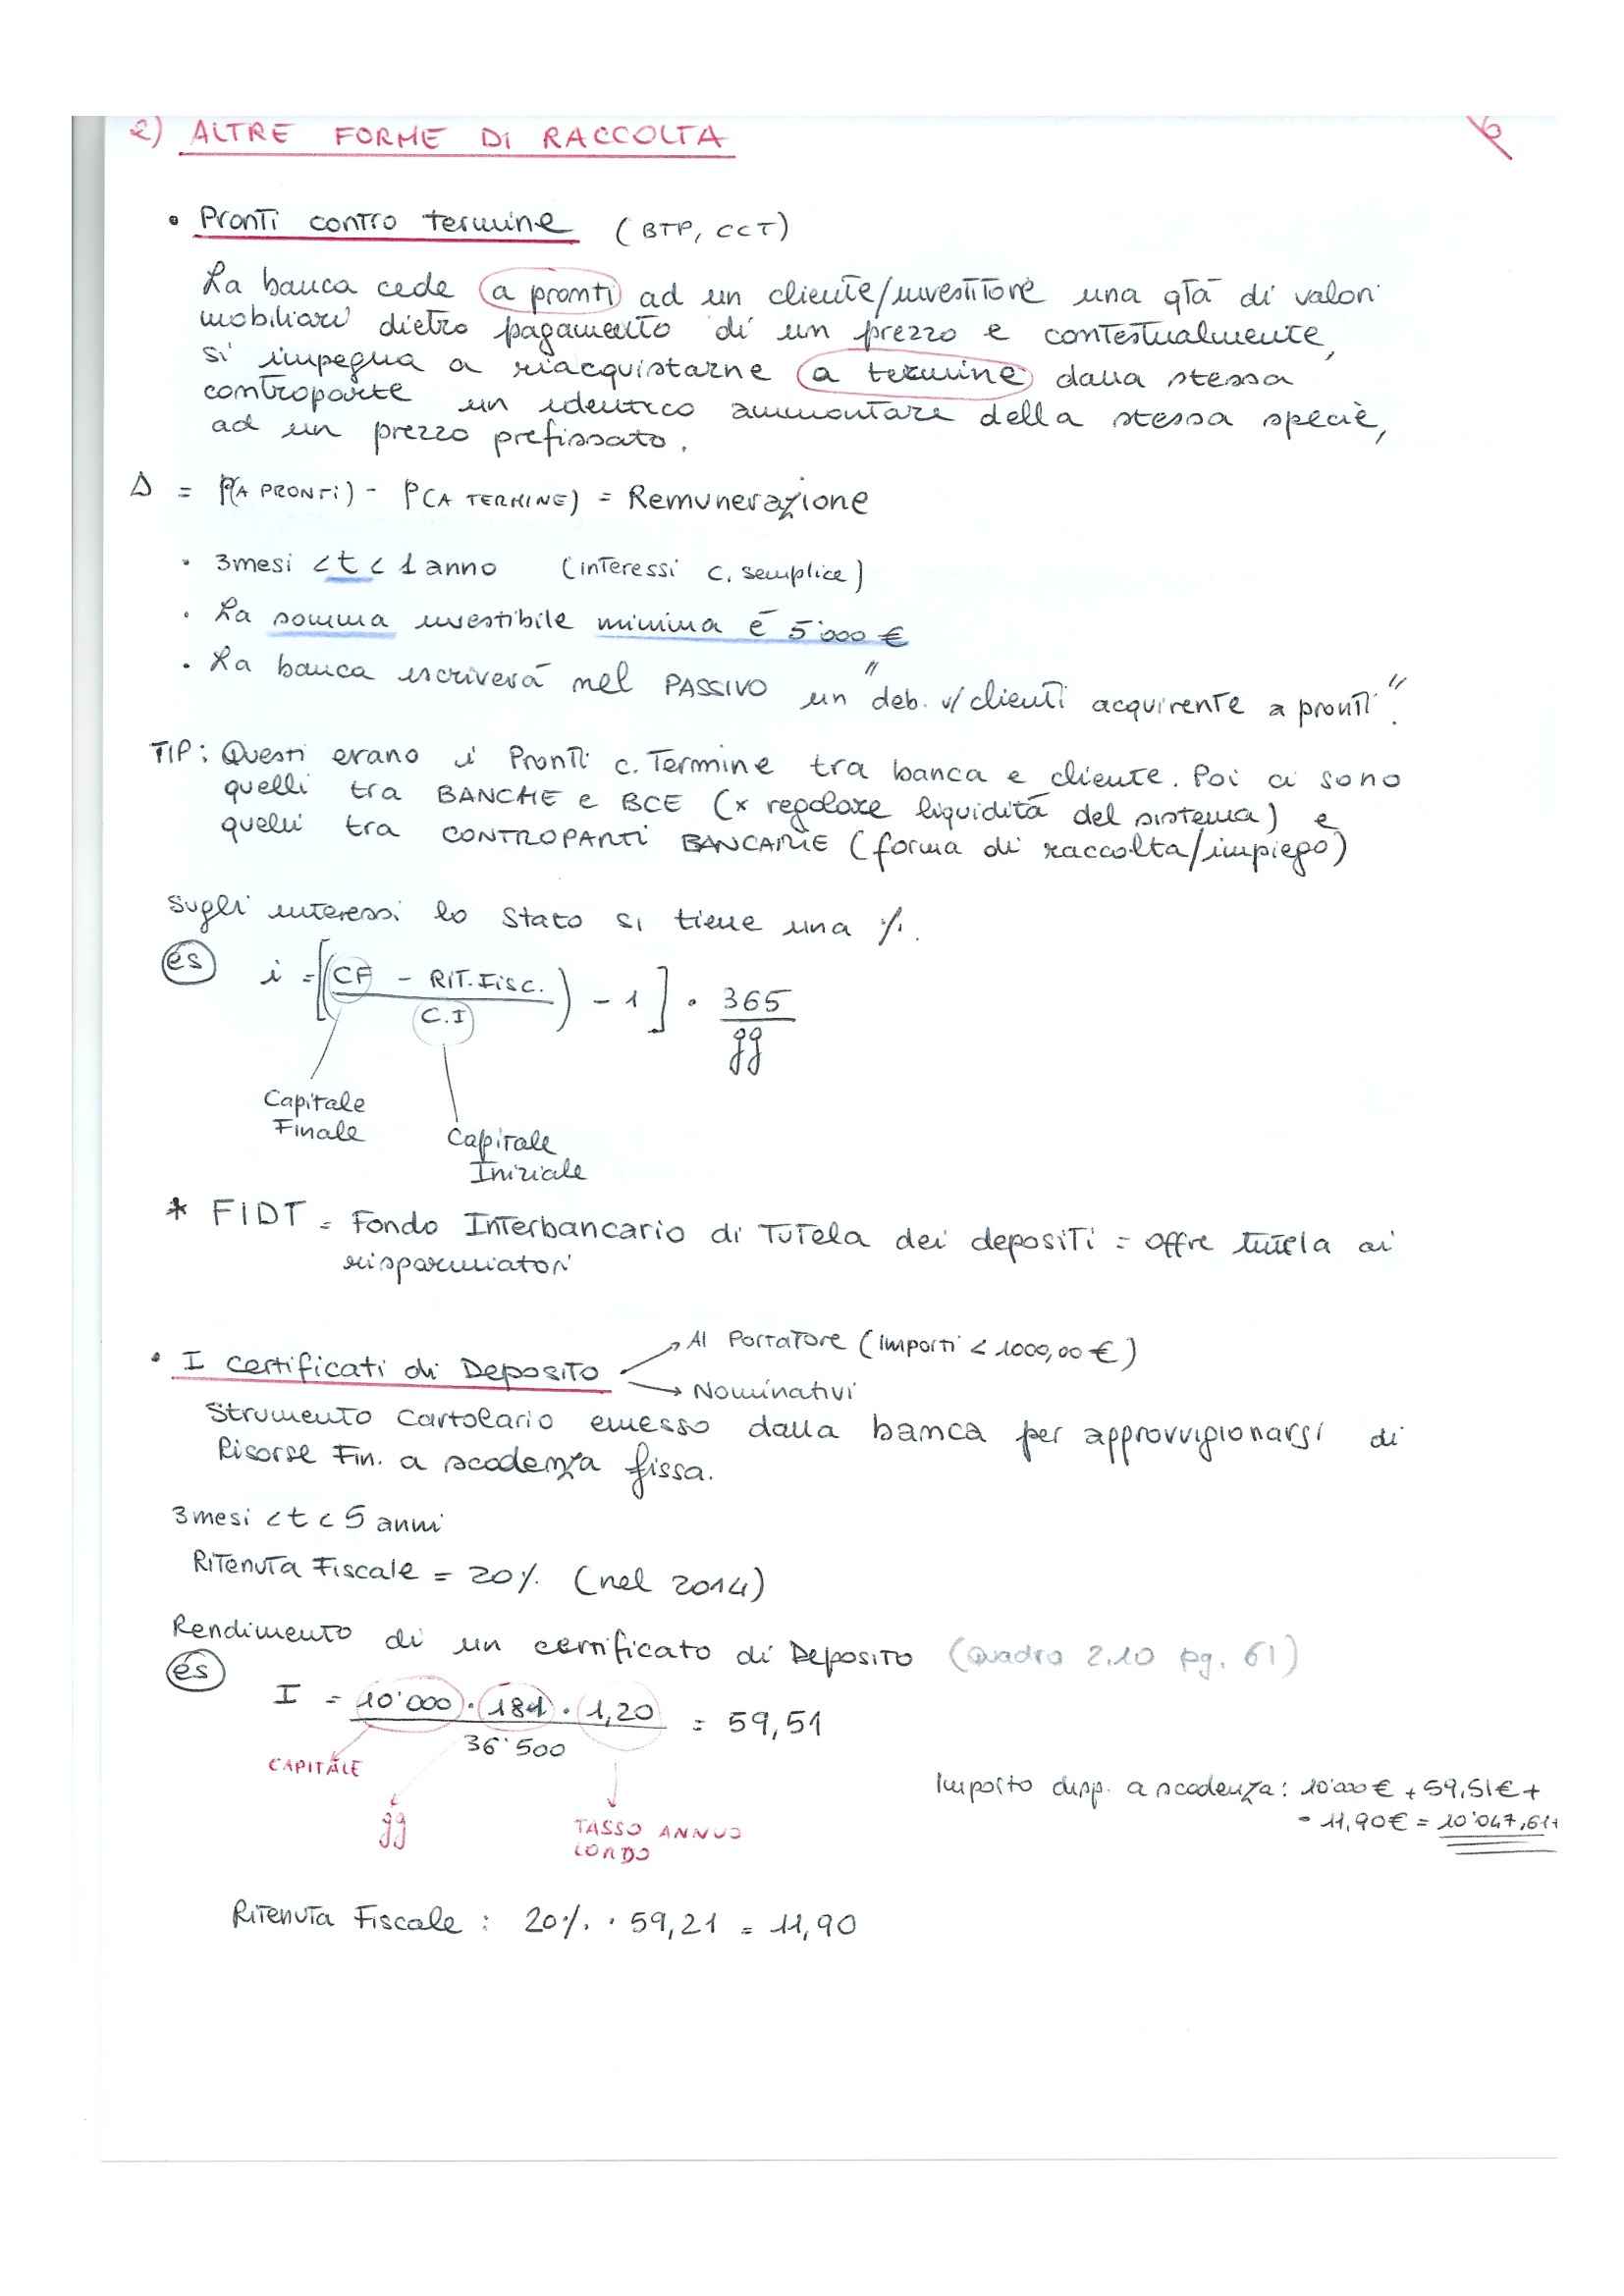 2) ALTRE FORME DI RACCOLTA
• Pronti contro termine (BTP, CCT)
La banca cede a pronti ad un cliente/investitore una qtà di valori
mobiliari dietro pagamento di un prezzo e contestualmente,
si impegna a riacquistarne a termine dalla stessa
controparte un identico ammontare della stessa specie,
ad un prezzo prefissato.
Δ = P(A PRONTI) - P(A TERMINE) = Remunerazione
• 3mesi < t < 1 anno (interessi c. semplice)
• La somma investibile minima è 5'000 €
• La banca iscriverà nel PASSIVO un "deb. v/clienti acquirente a pronti".
TIP: Questi erano i Pronti c. Termine tra banca e cliente. Poi ci sono
quelli tra BANCHE e BCE (x regolare liquidità del sistema) e
quelli tra CONTROPARTI BANCARIE (forma di raccolta/impiego)
Sugli interessi lo Stato si tiene una %.
es i = [(CF - RIT. FISC. / C.I) - 1] • 365 / gg
Capitale
Finale
Capitale
Iniziale
* FIDT = Fondo Interbancario di Tutela dei depositi = offre tutela ai
risparmiatori
• I certificati di Deposito → Al Portatore (importi < 1000,00 €)
→ Nominativi
Strumento Cartolario emesso dalla banca per approvvigionarsi di
Risorse Fin. a scadenza fissa.
3mesi < t < 5 anni
Ritenuta Fiscale = 20% (nel 2014)
Rendimento di un certificato di Deposito (Quadro 2.10 pg. 61)
es I = 10'000 • 181 • 1,20 / 36'500 = 59,51
CAPITALE
gg
TASSO ANNUO
LORDO
Importo disp. a scadenza: 10'000€ + 59,51€ +
- 11,90€ = 10'047,61
Ritenuta Fiscale : 20% • 59,21 = 11,90